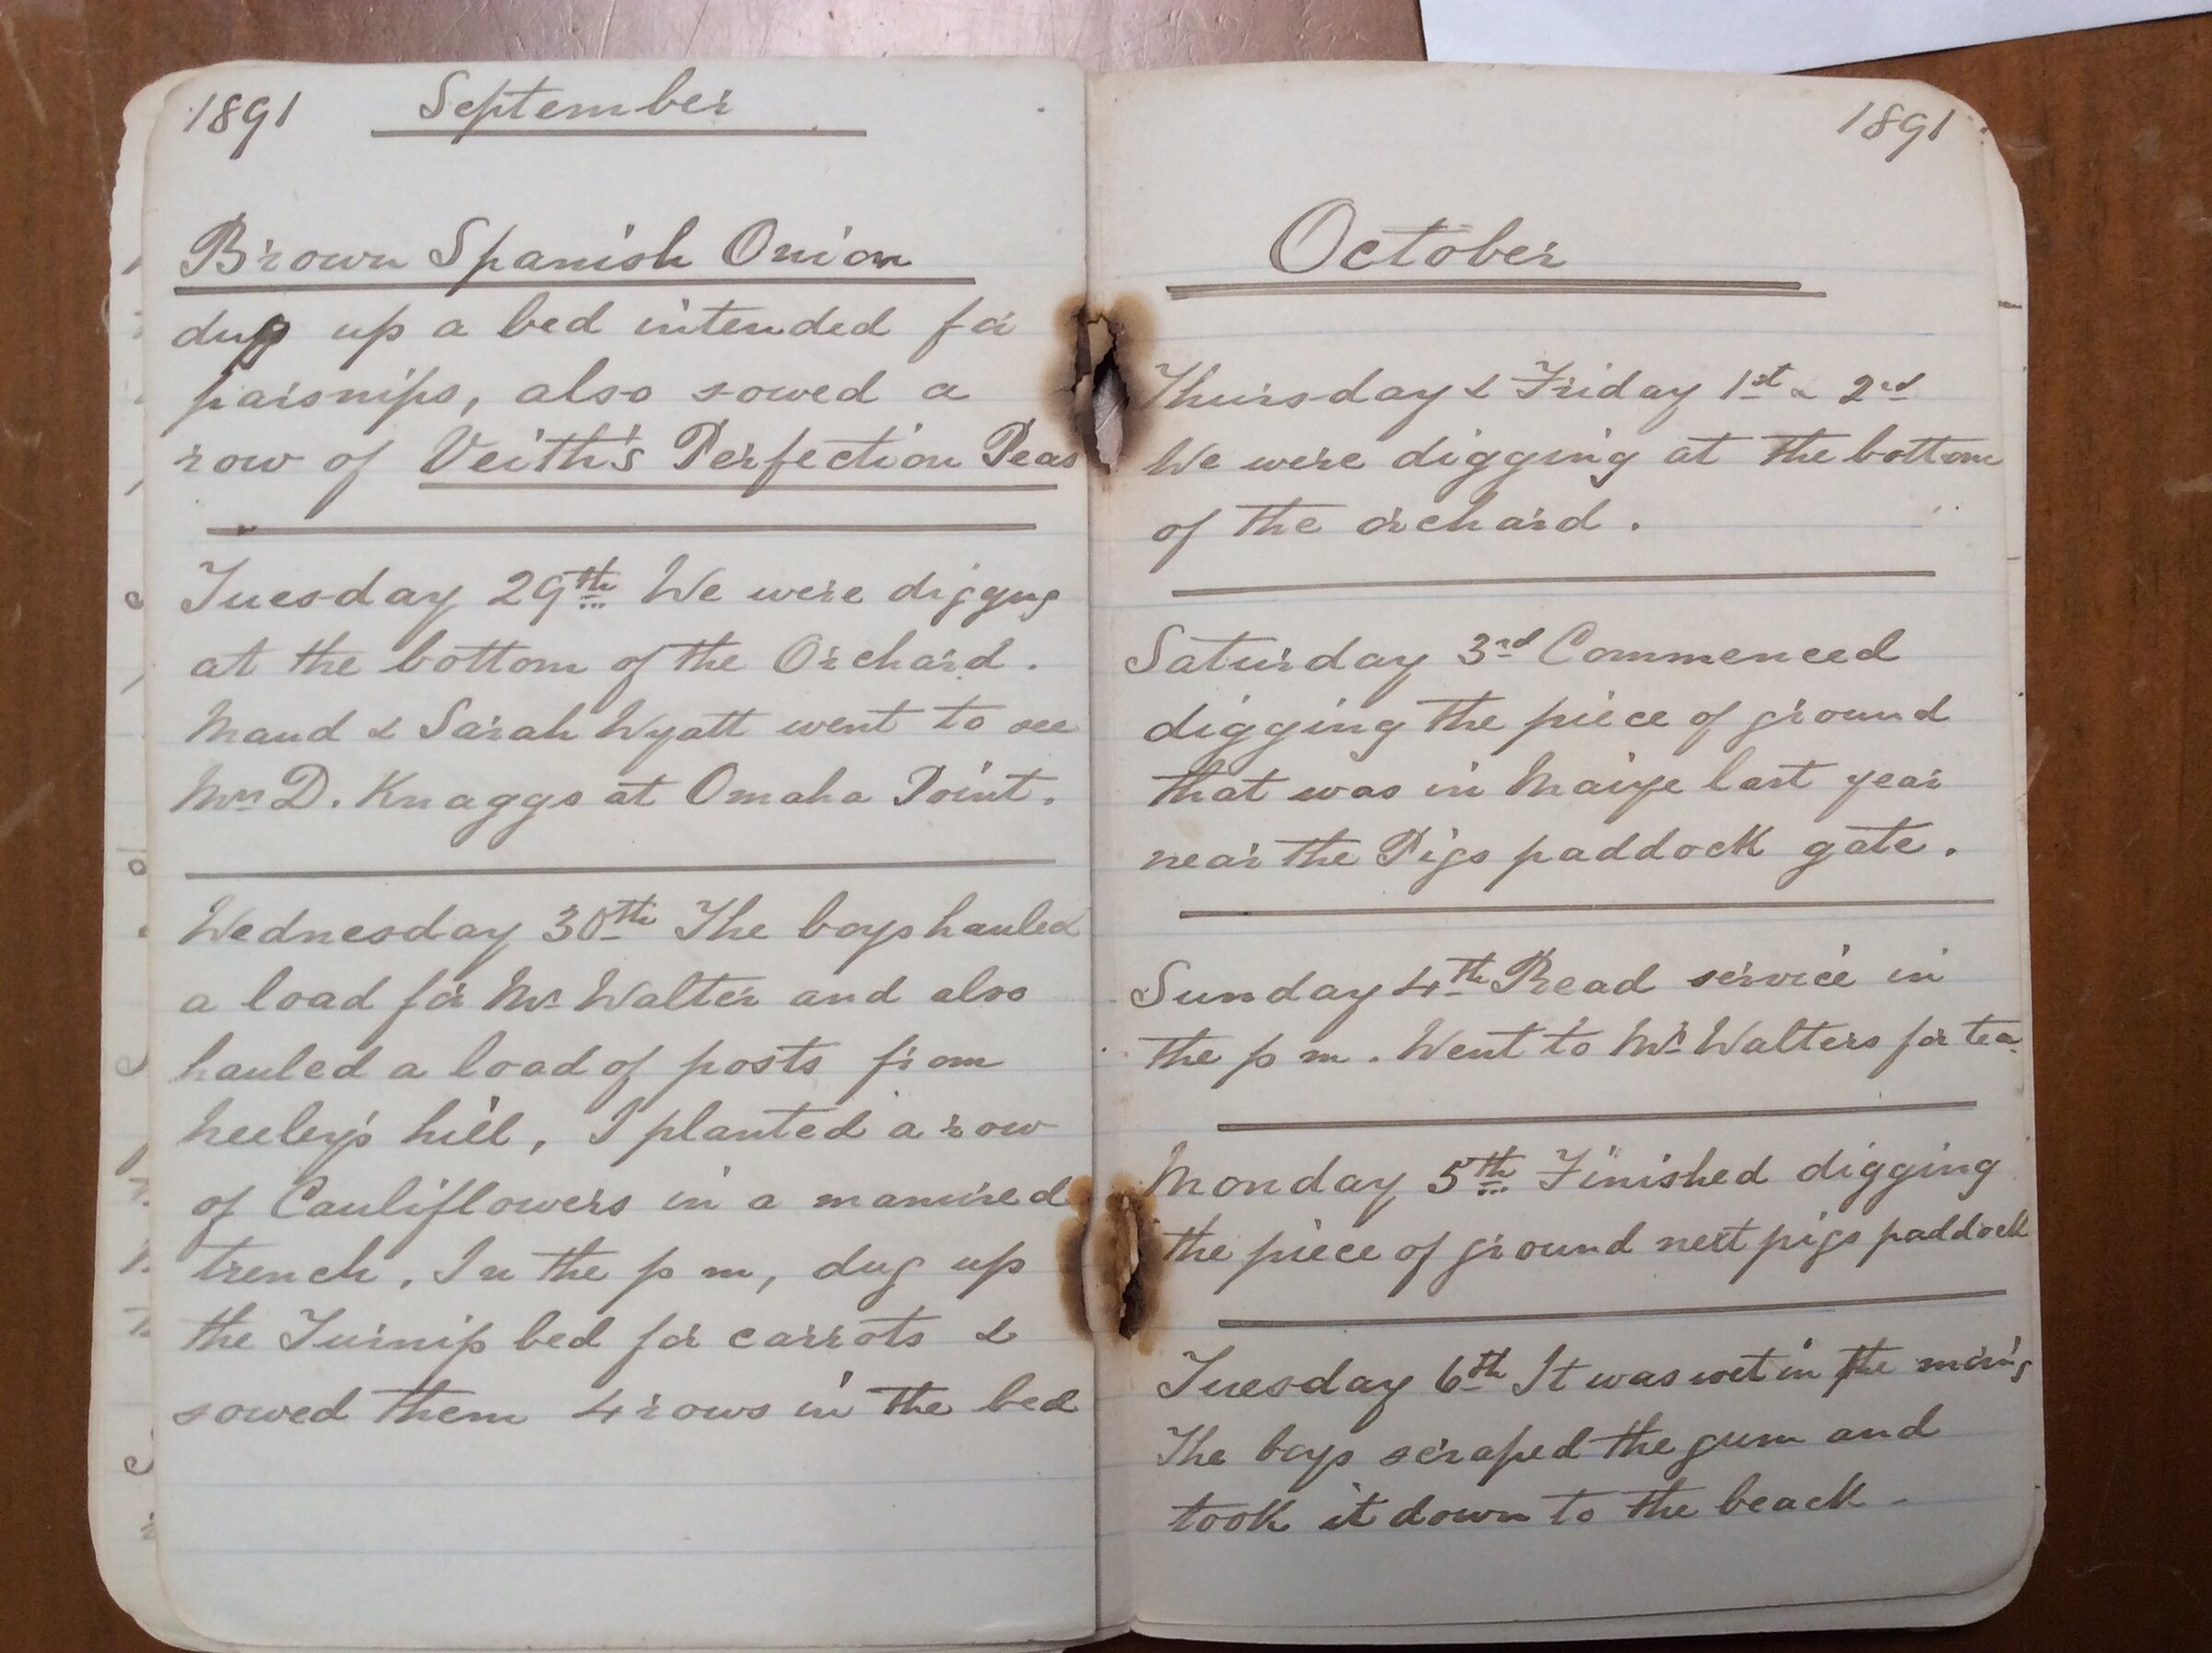 1891 September
Brown Spanish Onion
dug up a bed intended for
parsnips, also sowed a
row of Veith's Perfection Peas
Tuesday 29th We were digging
at the bottom of the Orchard.
Maud & Sarah Wyatt went to see
Mrs D. Knaggs at Omaha Point.
Wednesday 30th The boys hauled
a load for Mr Walter and also
hauled a load of posts from
heeley's hill, I planted a row
of Cauliflowers in a manured
trench. In the p m, dug up
the Turnip bed for carrots &
sowed them 4 rows in the bed
1891
October
Thursday & Friday 1st & 2nd
We were digging at the bottom
of the orchard.
Saturday 3rd Commenced
digging the piece of ground
that was in Maize last year
near the Pigs paddock gate.
Sunday 4th Read service in
the p m. Went to Mr Walters for tea
Monday 5th Finished digging
the piece of ground next pigs paddock
Tuesday 6th It was wet in the morn'g
The boys scraped the gum and
took it down to the beach.